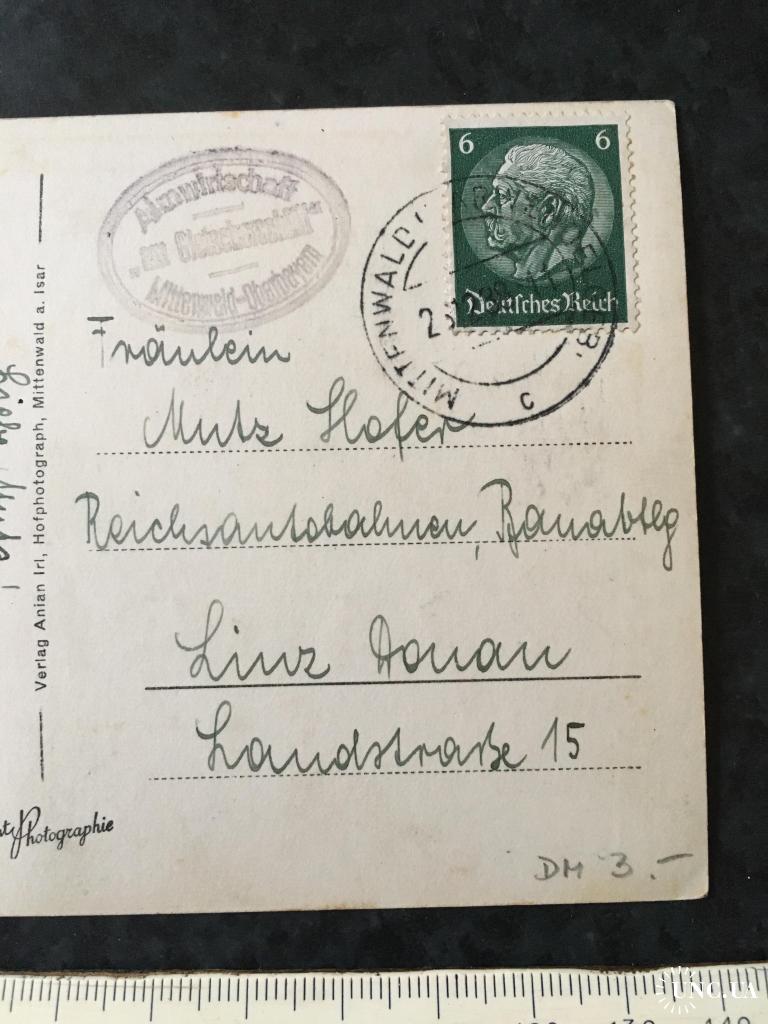 Almwirtschaft
"zur Gletscherschliff"
Mittenwald-Oberbayern
6 6
Deutsches Reich
MITTENWALD
c
Fräulein
Mutz Hofer
Reichsautobahnen, Bauabtlg
Linz Donau
Landstraße 15
Verlag Anian Irl, Hofphotograph, Mittenwald a. Isar
Photographie
DM 3.-
UNC.UA